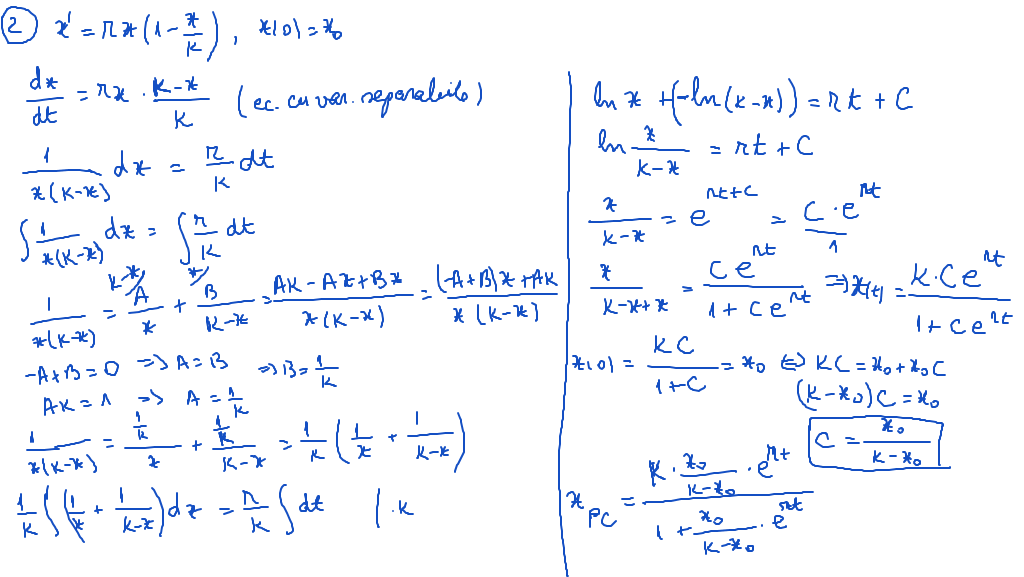 ② x' = rx(1 - x/K), x(0) = x₀
dx/dt = rx · (K-x)/K (ec. cu var. separabile)
1/(x(K-x)) dx = r/K dt
∫ 1/(x(K-x)) dx = ∫ r/K dt
1/(x(K-x)) = ᴷ⁻ˣ⁾A/x + ˣ⁾B/(K-x) = (AK - Ax + Bx)/(x(K-x)) = ((-A+B)x + AK)/(x(K-x))
-A+B = 0 => A = B => B = 1/K
AK = 1 => A = 1/K
1/(x(K-x)) = (1/K)/x + (1/K)/(K-x) = 1/K (1/x + 1/(K-x))
1/K ∫(1/x + 1/(K-x)) dx = r/K ∫ dt | ·K
ln x + (-ln(K-x)) = rt + C
ln x/(K-x) = rt + C
x/(K-x) = e^(rt+C) = (C·e^(rt))/1
x/(K-x+x) = (Ce^(rt))/(1+Ce^(rt)) => x(t) = (K·Ce^(rt))/(1+Ce^(rt))
x(0) = KC/(1+C) = x₀ <=> KC = x₀ + x₀C
(K-x₀)C = x₀
C = x₀/(K-x₀)
x_PC = (K · x₀/(K-x₀) · e^(rt))/(1 + x₀/(K-x₀) · e^(rt))